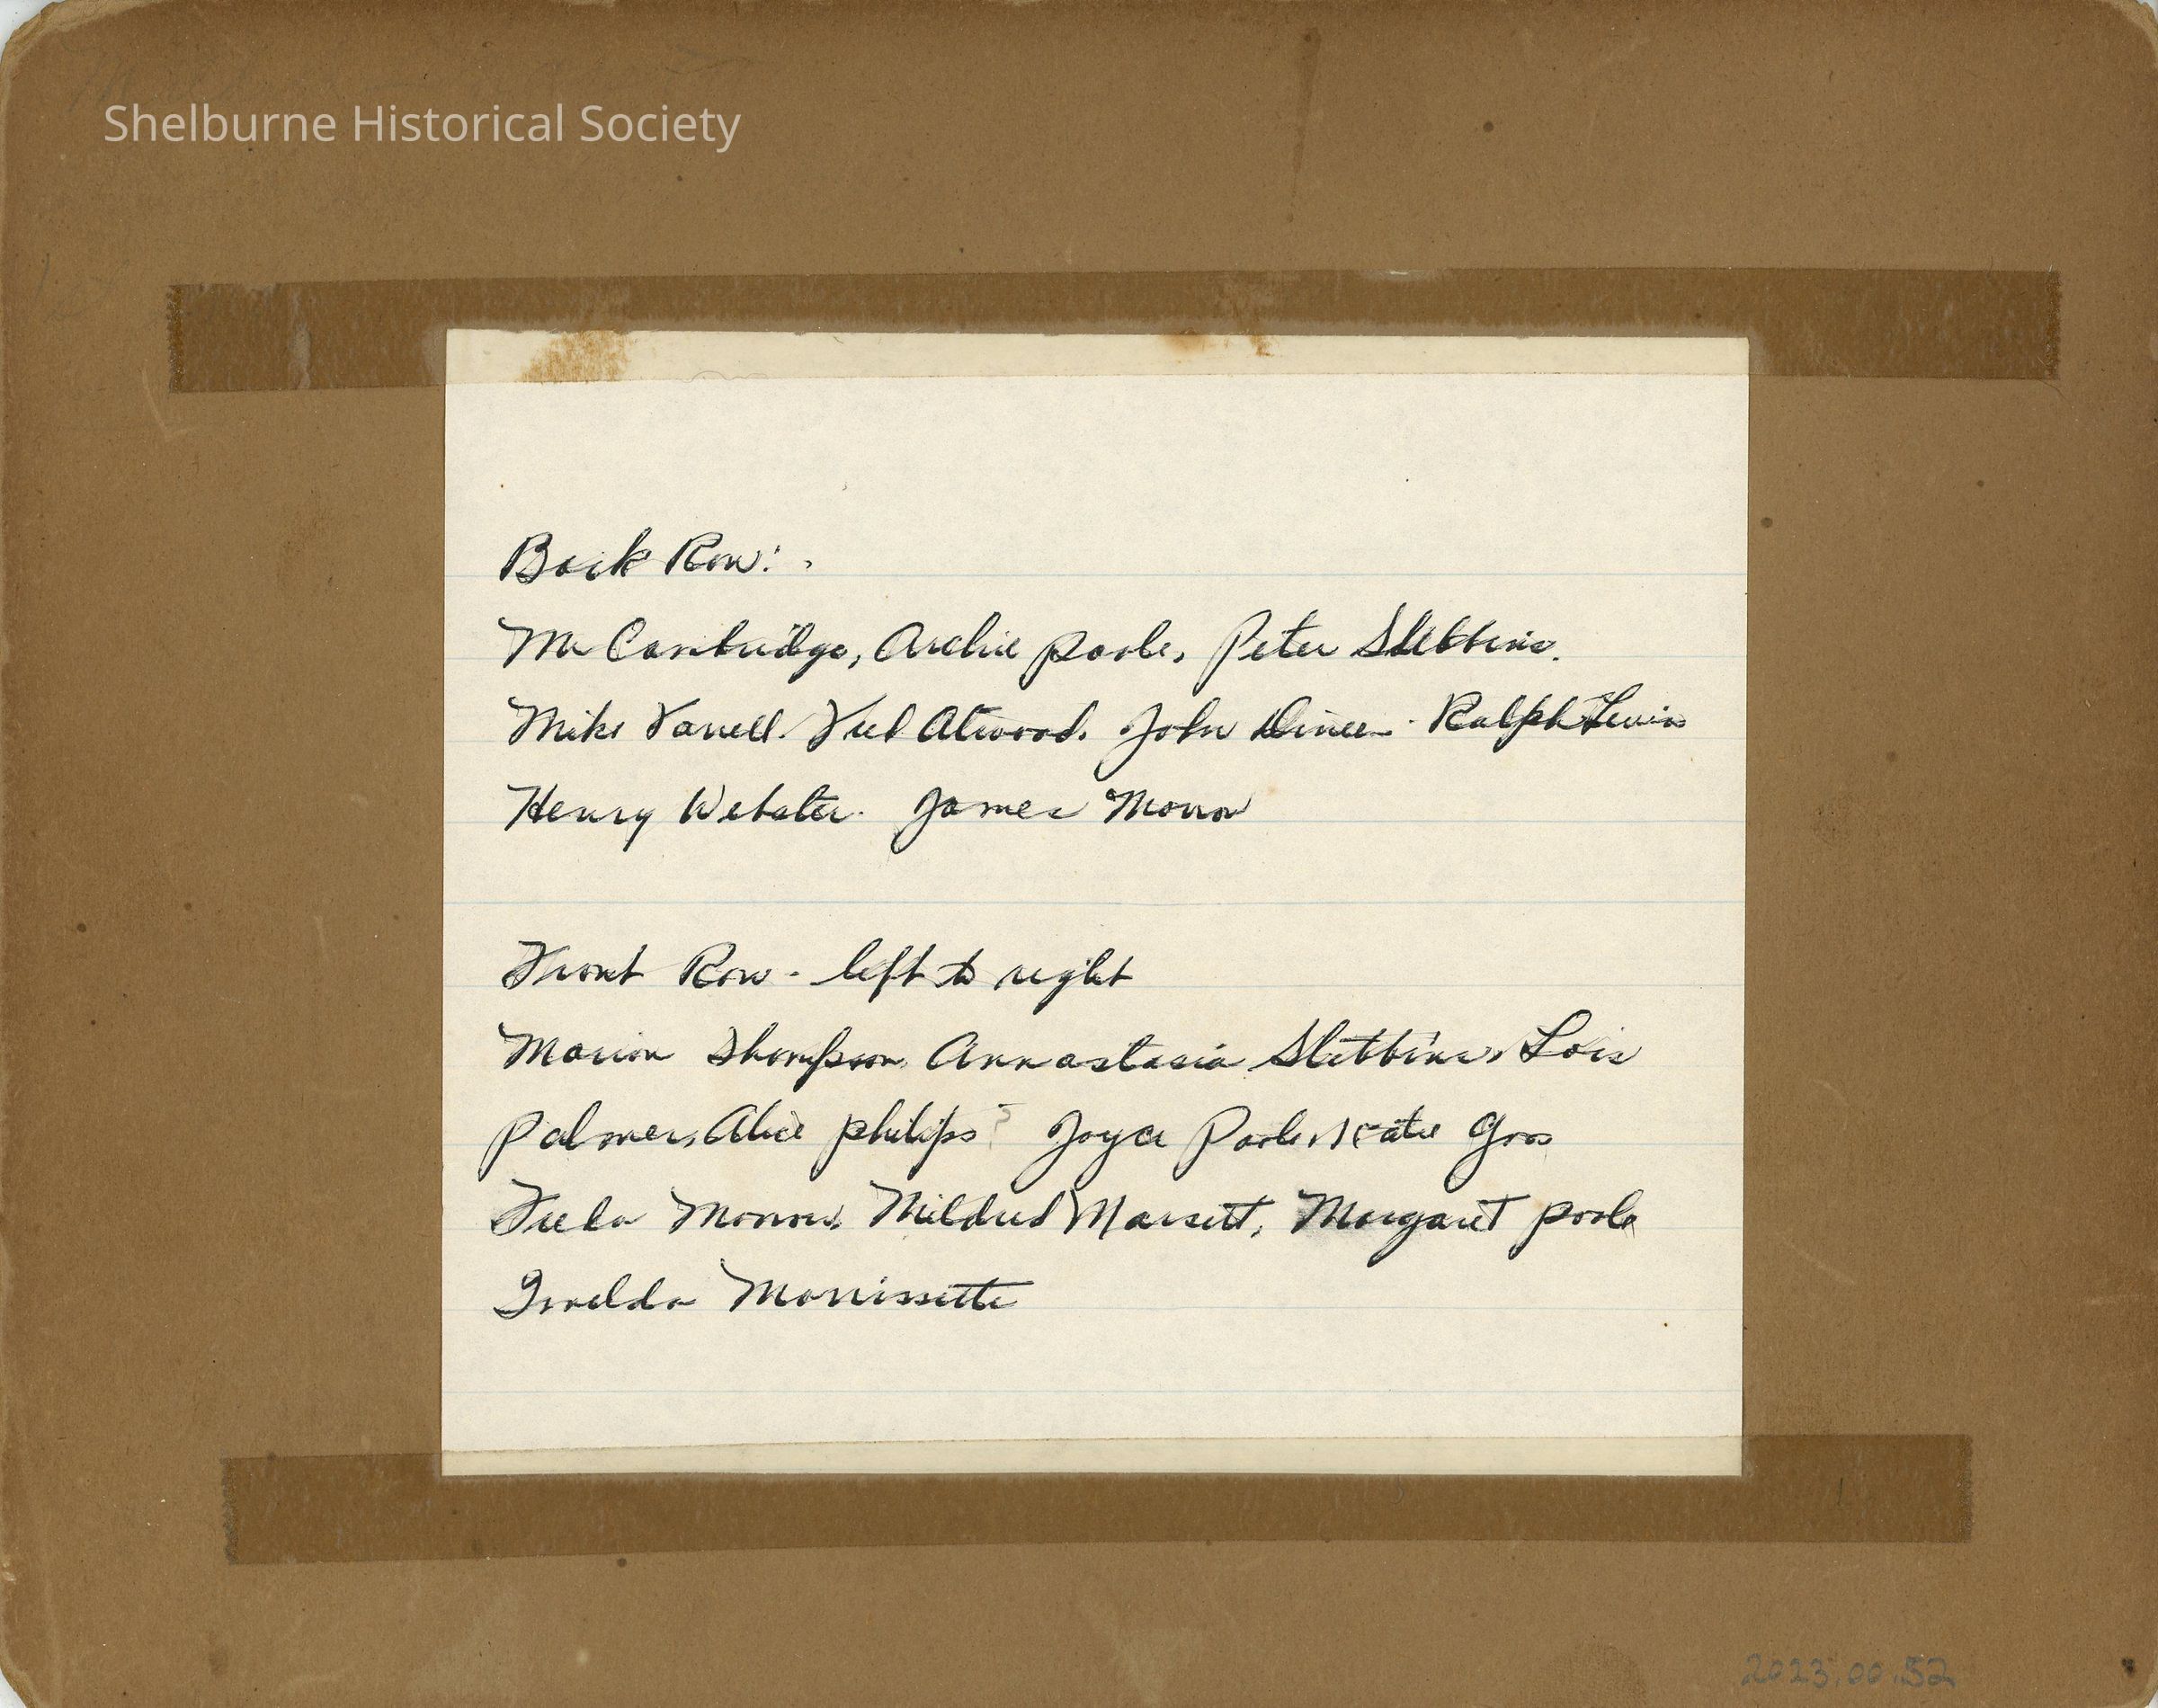 Shelburne Historical Society
Back Row:
Mr Cambridge, Archie Poole, Peter Stebbins.
Mike Farrell. Fred Atwood. John Dineen. Ralph Lewis
Henry Webster. James Morrow
Front Row - left to right
Marion Thompson, Annastasia Stebbins, Lois
Palmer, Alice Philips ? Joyce Poole, Katie Goss
Freda Morrow, Mildred Marsett, Margaret Poole
Imelda Morrissette
2023.00.52